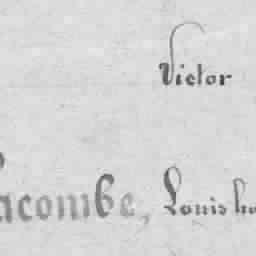 Victor
acombe, Louis